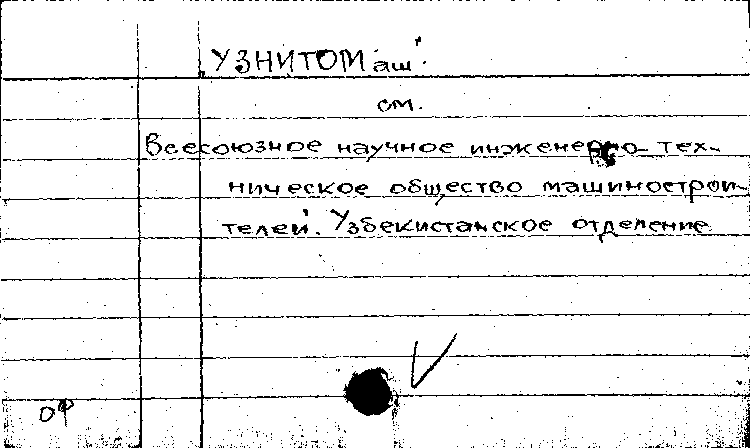 „УЗНИТОМаш".
см.
Всесоюзное научное инженерно-тех-
ническое общество машинострои-
телей. Узбекистанское отделение
ОФ